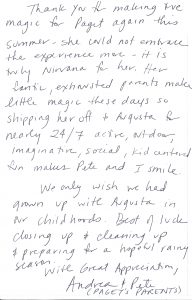 Thank you for making the
magic for Paget again this
summer - she could not embrace
the experience more - it is
truly Nirvana for her. Her
frantic, exhausted parents make
little magic these days so
shipping her off to Augusta for
nearly 24/7 active, outdoor,
imaginative, social, kid centered
fun makes Pete and I smile.
We only wish we had
grown up with Augusta in
our childhoods. Best of luck
closing up & cleaning up
& preparing for a hopeful rainy
season.
With Great Appreciation,
Andrea & Pete
(PAGET'S PARENTS)